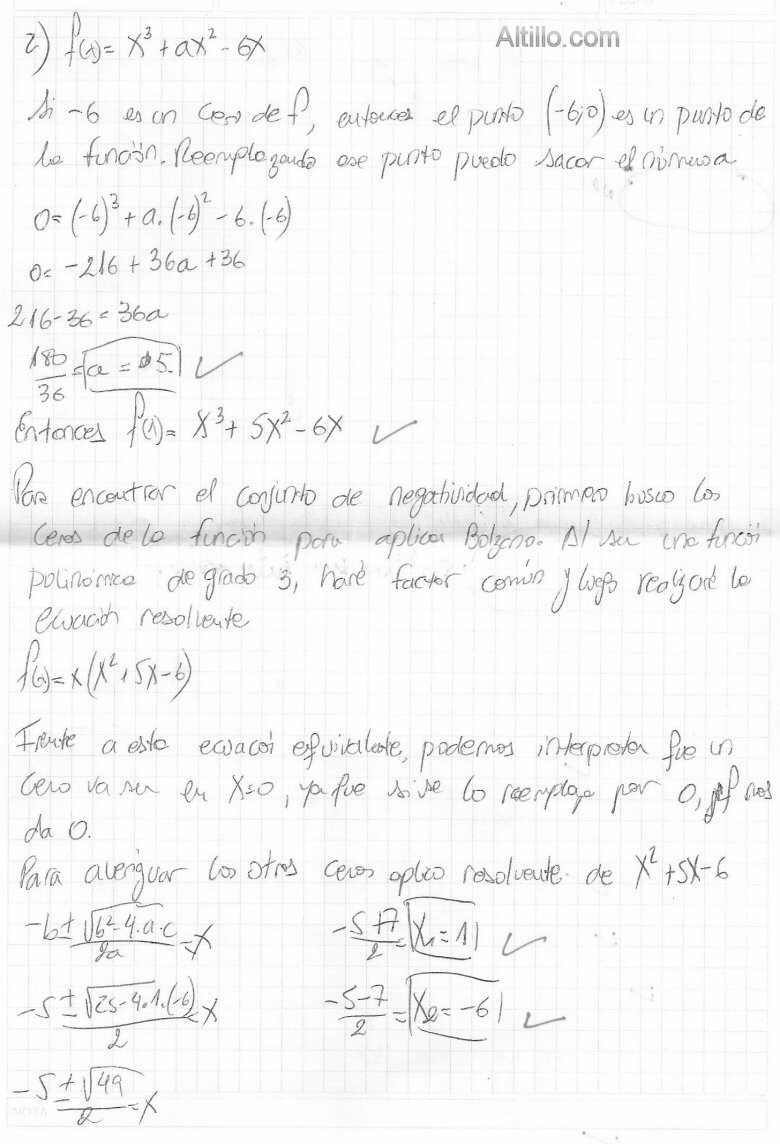 Altillo.com
2) f(x) = x³ + ax² - 6x
Si -6 es un cero de f, entonces el punto (-6;0) es un punto de
la función. Reemplazando ese punto puedo sacar el número a
0 = (-6)³ + a.(-6)² - 6.(-6)
0 = -216 + 36a + 36
216 - 36 = 36a
180/36 = a = 5 ✓
Entonces f(x) = x³ + 5x² - 6x ✓
Para encontrar el conjunto de negatividad, primero busco los
ceros de la función para aplicar Bolzano. Al ser una función
polinómica de grado 3, haré factor común y luego realizaré la
ecuación resolvente
f(x) = x(x² + 5x - 6)
Frente a esta ecuación equivalente, podemos interpretar que un
cero va ser en x=0, ya que si se lo reemplaza por 0, f nos
da 0.
Para averiguar los otros ceros aplico resolvente de x² + 5x - 6
(-b ± √(b² - 4.a.c))/2a = x
(-5+7)/2 = x₁ = 1 ✓
(-5 ± √(25 - 4.1.(-6)))/2 = x
(-5-7)/2 = x₂ = -6 ✓
(-5 ± √49)/2 = x